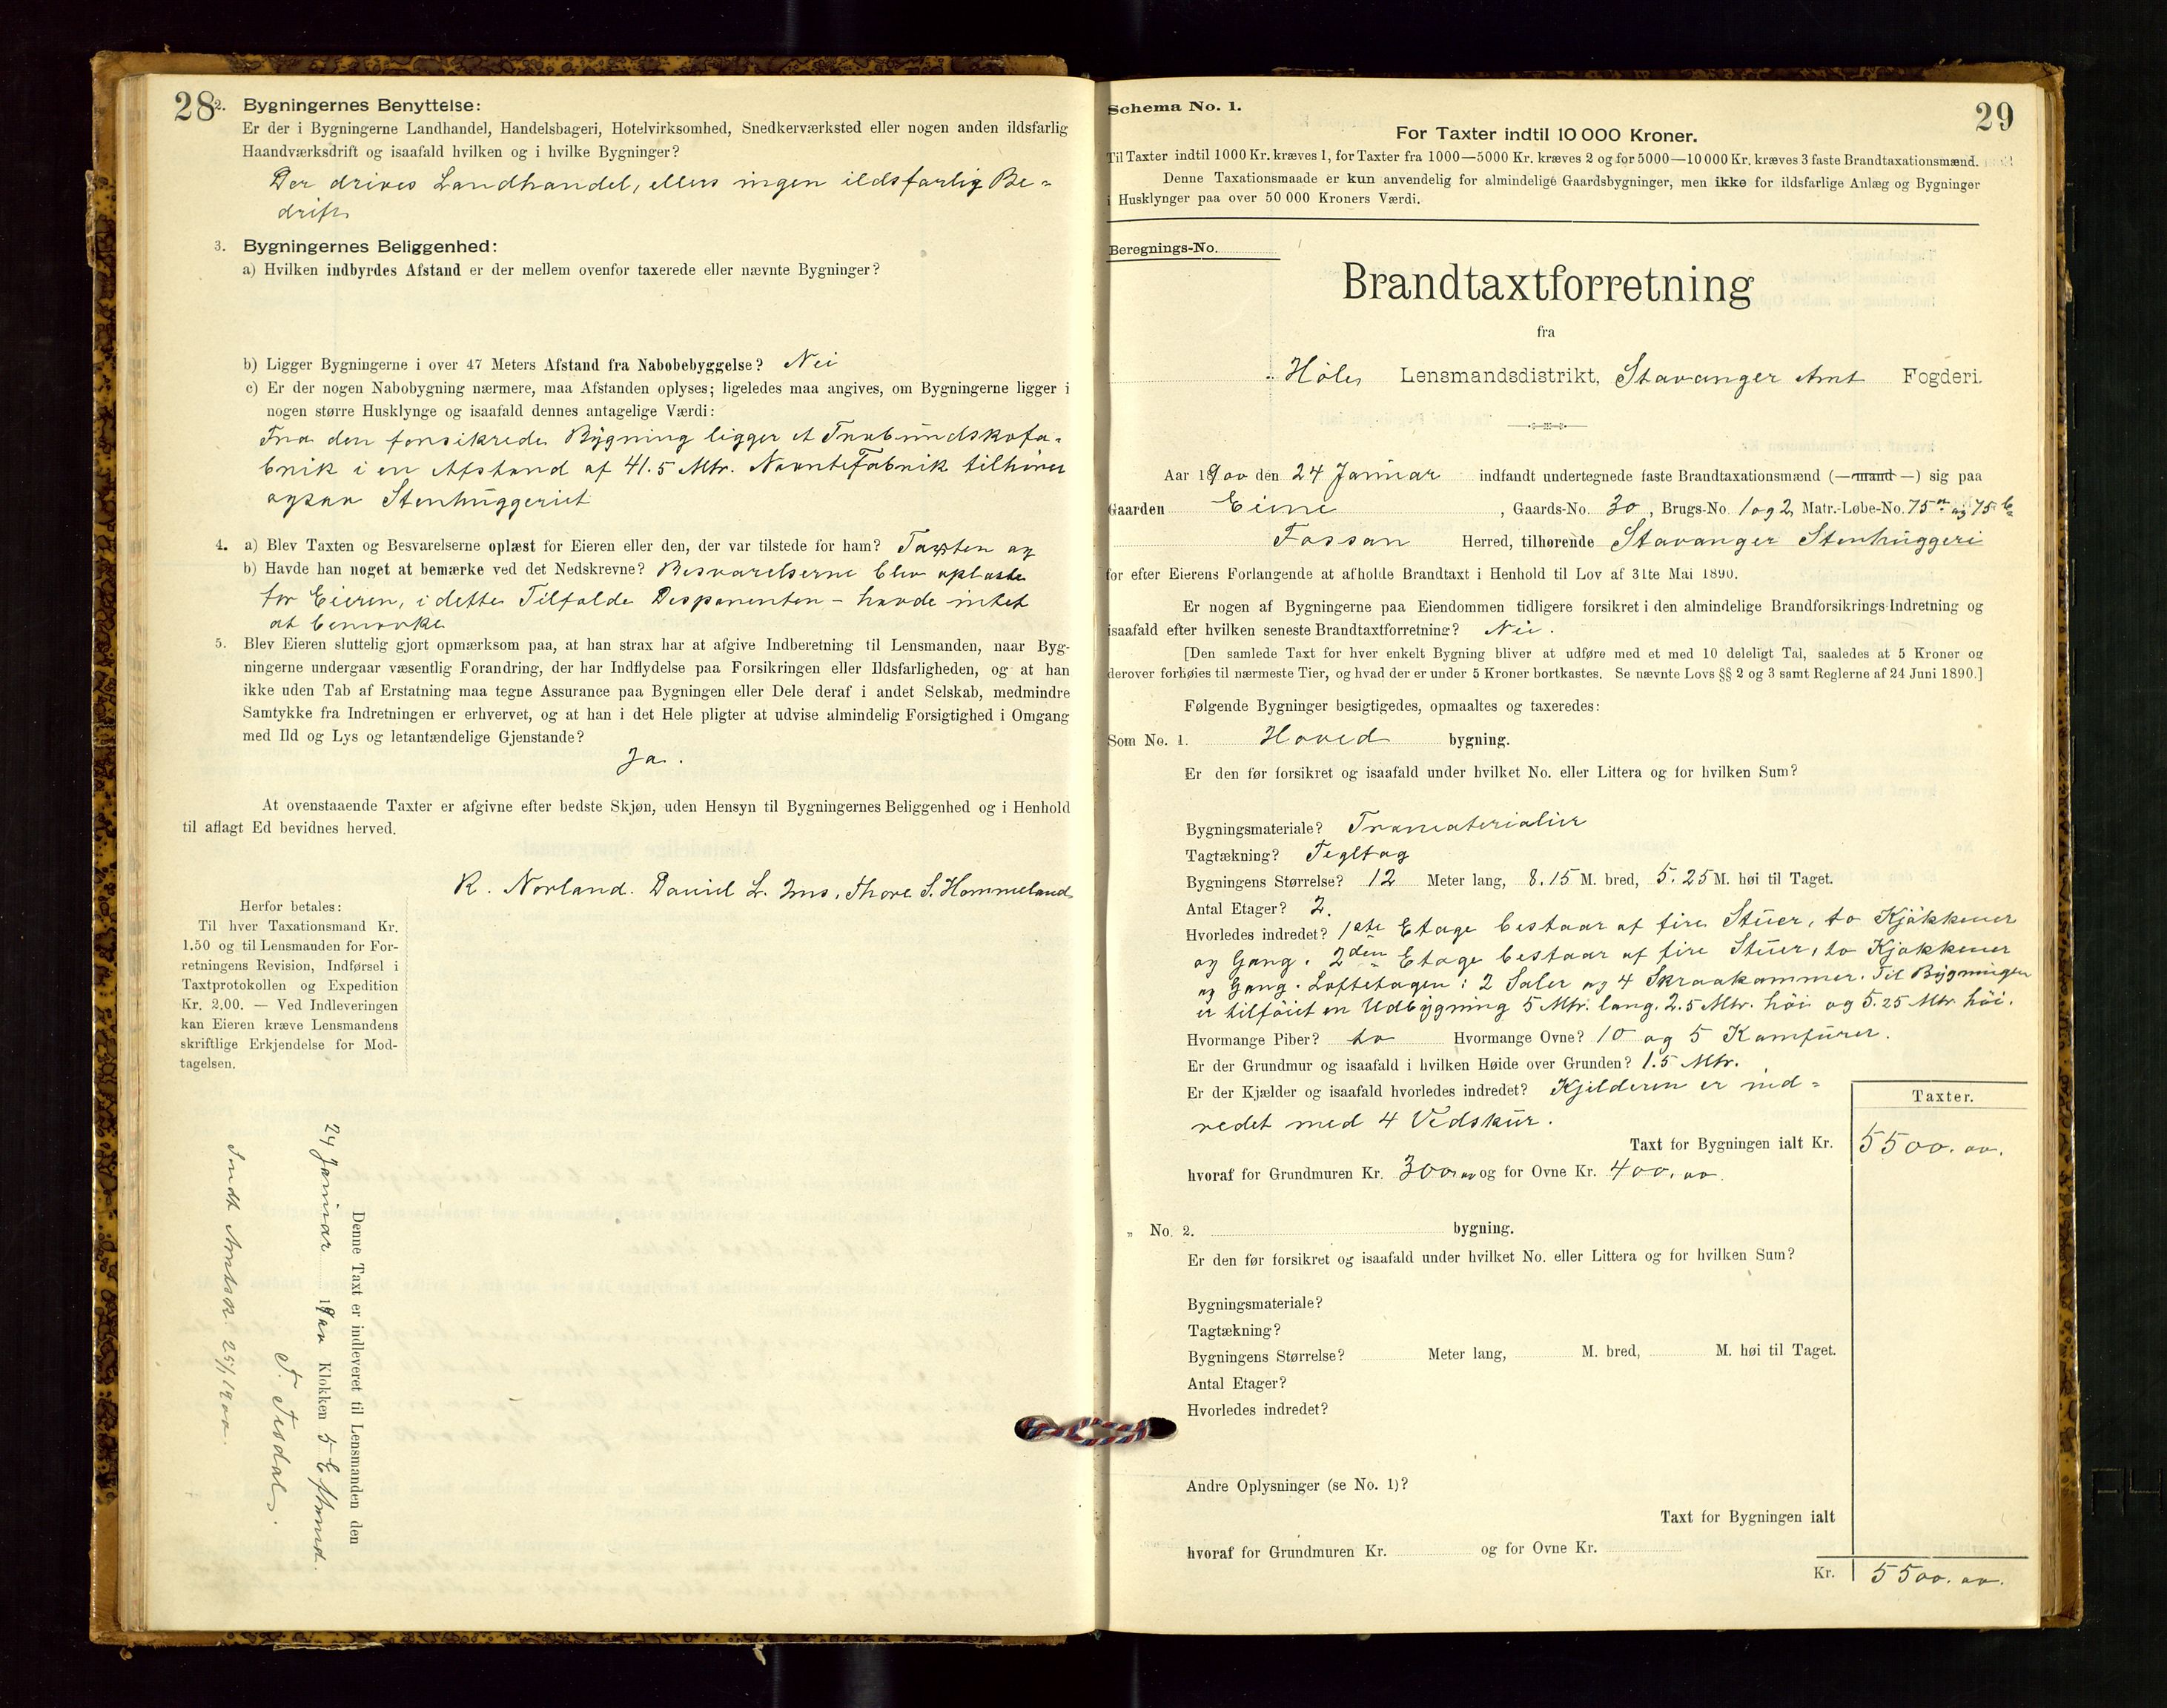 28
2. Bygningernes Benyttelse:
Er der i Bygningerne Landhandel, Handelsbageri, Hotelvirksomhed, Snedkerværksted eller nogen anden ildsfarlig
Haandværksdrift og isaafald hvilken og i hvilke Bygninger?
Der drives Landhandel, ellers ingen ildsfarlig Be-
drift
3. Bygningernes Beliggenhed:
a) Hvilken indbyrdes Afstand er der mellem ovenfor taxerede eller nævnte Bygninger?
b) Ligger Bygningerne i over 47 Meters Afstand fra Nabobebyggelse? Nei
c) Er der nogen Nabobygning nærmere, maa Afstanden oplyses; ligeledes maa angives, om Bygningerne ligger i
nogen større Husklynge og isaafald dennes antagelige Værdi:
Fra den forsikrede Bygning ligger et Træbundskofa-
brik i en Afstand af 41.5 Mtr. Nævnte Fabrik tilhører
ogsaa Stenhuggeriet
4. a) Blev Taxten og Besvarelserne oplæst for Eieren eller den, der var tilstede for ham? Taxten og
b) Havde han noget at bemærke ved det Nedskrevne? Besvarelserne blev oplæste
for Eieren, i dette Tilfælde Disponenten – havde intet
at bemærke
5. Blev Eieren sluttelig gjort opmærksom paa, at han strax har at afgive Indberetning til Lensmanden, naar Byg-
ningerne undergaar væsentlig Forandring, der har Indflydelse paa Forsikringen eller Ildsfarligheden, og at han
ikke uden Tab af Erstatning maa tegne Assurance paa Bygningen eller Dele deraf i andet Selskab, medmindre
Samtykke fra Indretningen er erhvervet, og at han i det Hele pligter at udvise almindelig Forsigtighed i Omgang
med Ild og Lys og letantændelige Gjenstande?
Ja.
At ovenstaaende Taxter er afgivne efter bedste Skjøn, uden Hensyn til Bygningernes Beliggenhed og i Henhold
til aflagt Ed bevidnes herved.
R. Norland. Daniel L. Ims, Thore S. Hommeland
Herfor betales:
Til hver Taxationsmand Kr.
1.50 og til Lensmanden for For-
retningens Revision, Indførsel i
Taxtprotokollen og Expedition
Kr. 2.00. — Ved Indleveringen
kan Eieren kræve Lensmandens
skriftlige Erkjendelse for Mod-
tagelsen.
Denne Taxt er indleveret til Lensmanden den
24 Januar 1900 Klokken 5 Eftmd.
T. Tesdal.
Sendt Amtssk. 25/1 1900.
29
Schema No. 1.
For Taxter indtil 10 000 Kroner.
Til Taxter indtil 1000 Kr. kræves 1, for Taxter fra 1000—5000 Kr. kræves 2 og for 5000—10 000 Kr. kræves 3 faste Brandtaxationsmænd.
Denne Taxationsmaade er kun anvendelig for almindelige Gaardsbygninger, men ikke for ildsfarlige Anlæg og Bygninger
i Husklynger paa over 50 000 Kroners Værdi.
Beregnings-No.
Brandtaxtforretning
fra
Høle Lensmandsdistrikt, Stavanger Amt Fogderi.
Aar 1900 den 24 Januar indfandt undertegnede faste Brandtaxationsmænd (—mand—) sig paa
Gaarden Eine, Gaards-No. 30, Brugs-No. 1 og 2, Matr.-Løbe-No. 75a og 75b
Fossan Herred, tilhørende Stavanger Stenhuggeri
for efter Eierens Forlangende at afholde Brandtaxt i Henhold til Lov af 31te Mai 1890.
Er nogen af Bygningerne paa Eiendommen tidligere forsikret i den almindelige Brandforsikrings-Indretning og
isaafald efter hvilken seneste Brandtaxtforretning? Nei.
[Den samlede Taxt for hver enkelt Bygning bliver at udføre med et med 10 deleligt Tal, saaledes at 5 Kroner og
derover forhøies til nærmeste Tier, og hvad der er under 5 Kroner bortkastes. Se nævnte Lovs §§ 2 og 3 samt Reglerne af 24 Juni 1890.]
Følgende Bygninger besigtigedes, opmaaltes og taxeredes:
Som No. 1. Hoved bygning.
Er den før forsikret og isaafald under hvilket No. eller Littera og for hvilken Sum?
Bygningsmateriale? Træmaterialier
Tagtækning? Tegltag
Bygningens Størrelse? 12 Meter lang, 8.15 M. bred, 5.25 M. høi til Taget.
Antal Etager? 2.
Hvorledes indredet? 1ste Etage bestaar af fire Stuer, to Kjøkkener
og Gang. 2den Etage bestaar af fire Stuer, to Kjøkkener
og Gang. Loftetagen: 2 Saler og 4 Skraakammer. Til Bygningen
er tilføiet en Udbygning 5 Mtr. lang, 2.5 Mtr. høi og 5.25 Mtr høi.
Hvormange Piber? to Hvormange Ovne? 10 og 5 Komfurer.
Er der Grundmur og isaafald i hvilken Høide over Grunden? 1.5 Mtr.
Er der Kjælder og isaafald hvorledes indredet? Kjelderen er ind-
redet med 4 Vedskur.
Taxter.
Taxt for Bygningen ialt Kr. 5500.00.
hvoraf for Grundmuren Kr. 300.00 og for Ovne Kr. 400.00.
„ No. 2. bygning.
Er den før forsikret og isaafald under hvilket No. eller Littera og for hvilken Sum?
Bygningsmateriale?
Tagtækning?
Bygningens Størrelse? Meter lang, M. bred, M. høi til Taget.
Antal Etager?
Hvorledes indredet?
Andre Oplysninger (se No. 1)?
Taxt for Bygningen ialt
hvoraf for Grundmuren Kr. og for Ovne Kr.
Kr. 5500.00.